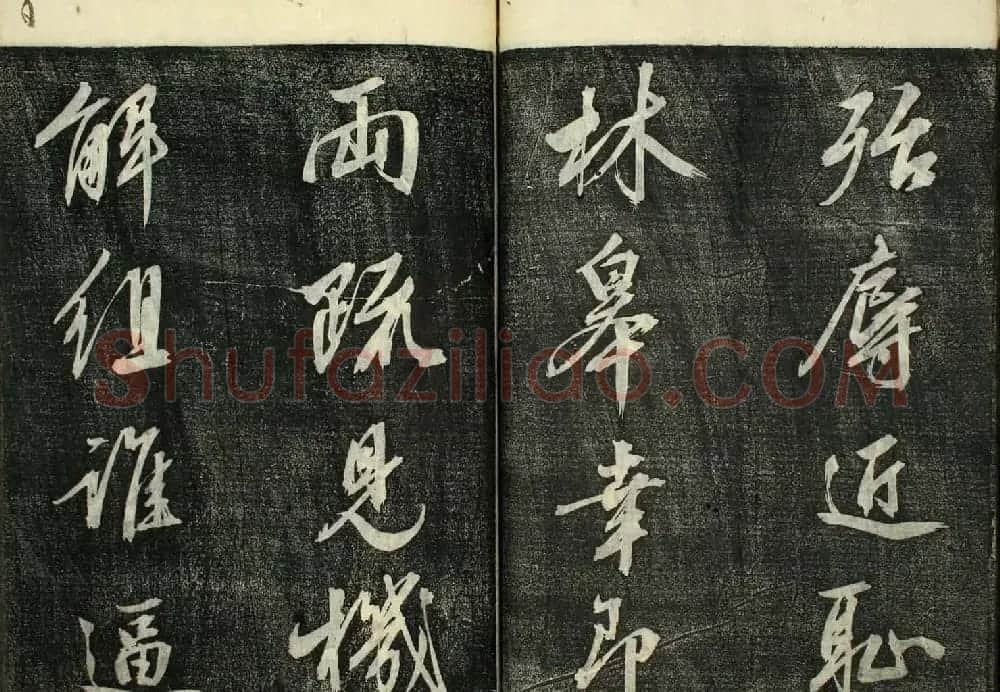 殆辱近恥
林皋幸即
兩疏見機
解組誰逼
Shufaziliao.COM